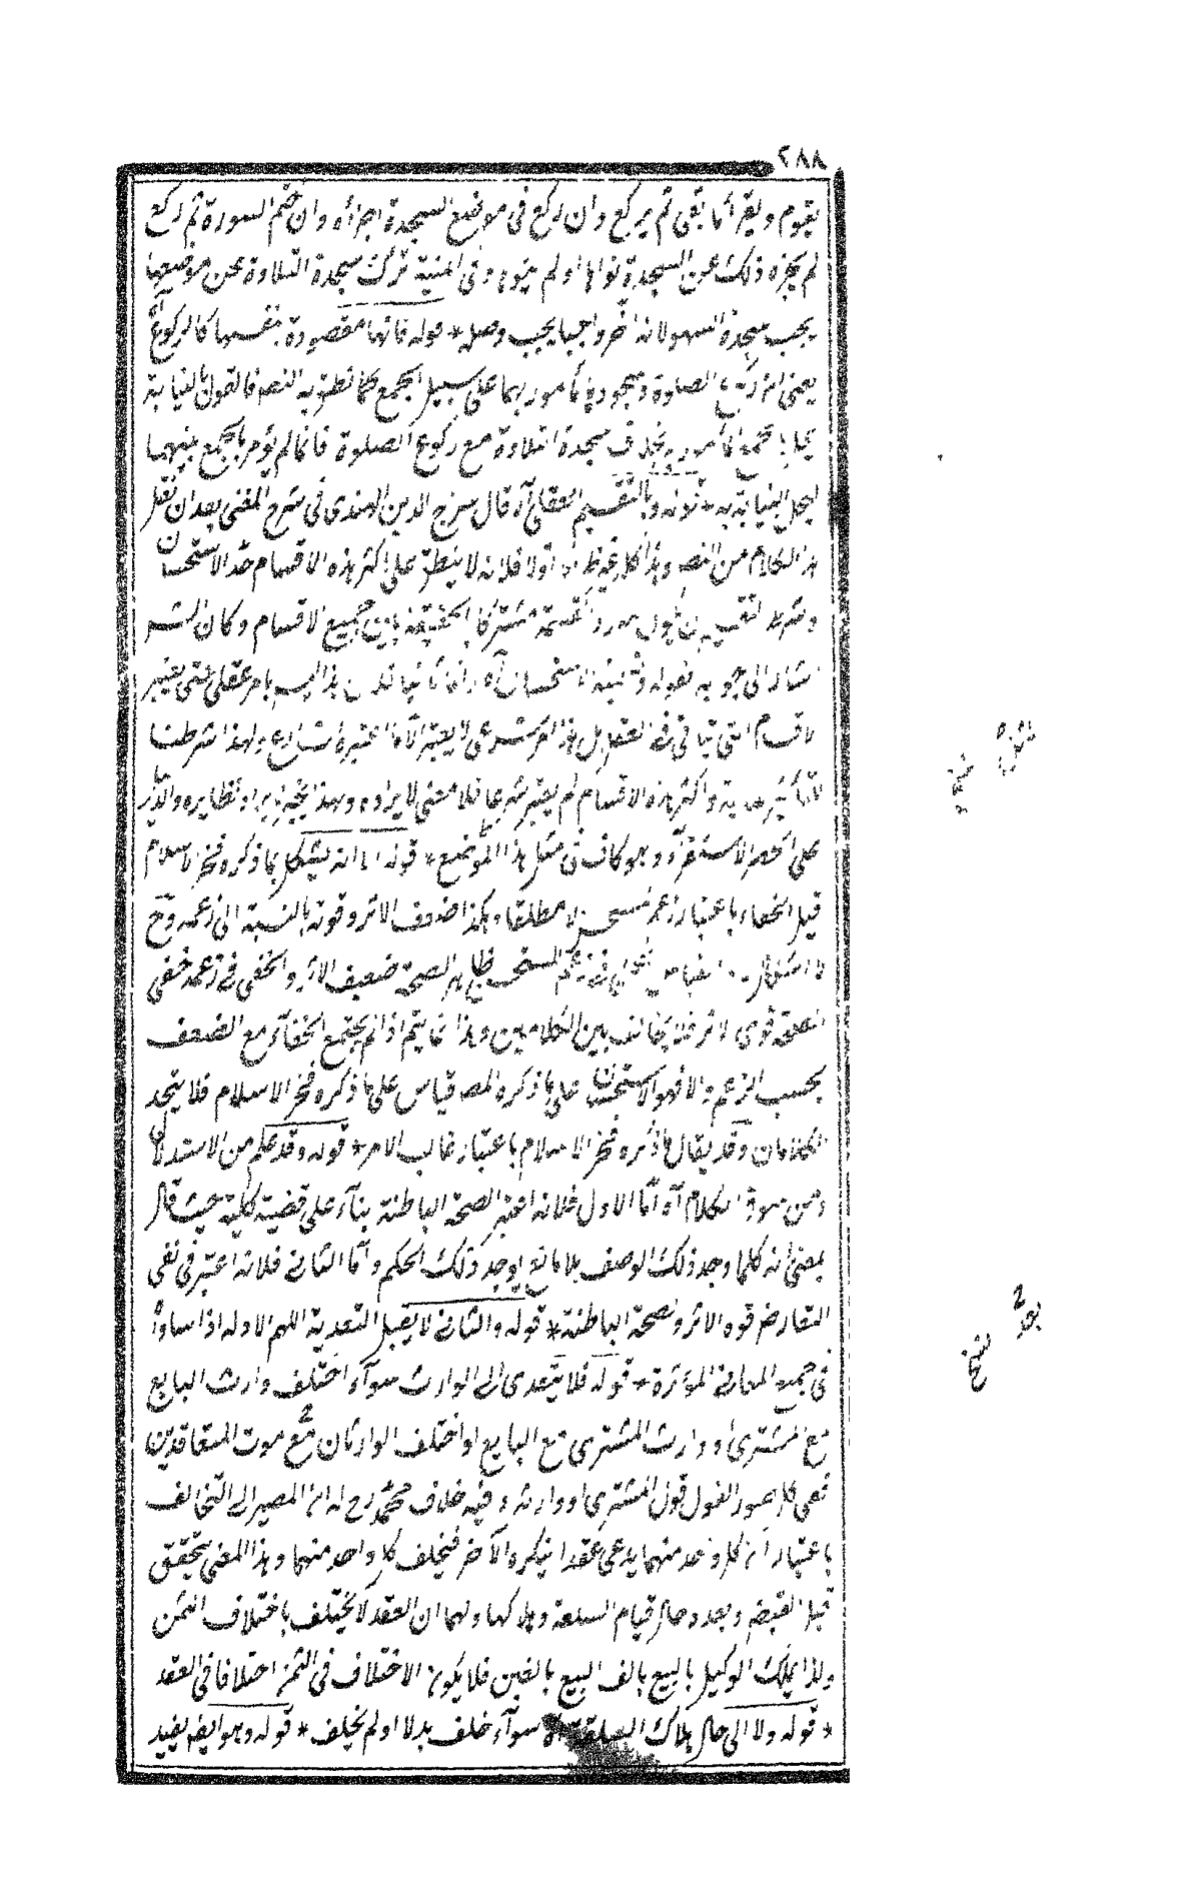 ٢٨٨
يقوم ويقرأ ما بقى ثم يركع وان ركع فى موضع السجدة اجزأه وان ختم السورة ثم ركع
لم يجزه ذلك عن السجدة نواها او لم ينوها وفى المنية ترك سجدة التلاوة عن موضعها
يجب سجدة السهو لانه اخر واجبا يجب وصله * قوله فانها مقصودة بنفسها كالركوع
يعنى ان ركوع الصلوة وسجودها مأمور بهما على سبيل الجمع كما نطق به النص فالقول بالنيابة
يخل بجمع المأمور به بخلاف سجدة التلاوة مع ركوع الصلوة فانما لم يؤمر بالجمع بينهما
ليخل النيابة به * قوله وبالتقسيم العقلى آه قال سرج الدين الهندى فى شرح المغنى بعد ان نقل
هذا الكلام من النص وهذا كله فيه نظر اما اولا فلانه لا ينطبق على اكثر هذه الاقسام حد الاستحسان
وشرط التقسيم ان يكون مورد القسمة مشتركا بالحقيقة بين جميع الاقسام وكان المص
اشار الى جوابه بقوله وتسميته الاستحسان آه واما ثانيا فلان هذا ليس بامر عقلى حتى يعتبر
الاقسام التى تتأتى فى العقل بل هذا امر شرعى لا يعتبر الا ما اعتبره الشارع ولهذا شرطنا
التأثير فيه واكثر هذه الاقسام لم يعتبر شرعا فلا معنى لايراده وبهذا يخرج ايراد نظايره والدليل
على الحصر الاستقراء وهو كاف فى مثل هذا الموضع * قوله اما انه يشكل بما ذكره فخر الاسلام
قيل الخفاء باعتبار زعم المستحسن لا مطلقا وهكذا ضعف الاثر وقوته بالنسبة الى زعمه وح
لا اشكال القياس فى زعم المستحسن ظاهر الصحة ضعيف الاثر والخفى فى زعمه خفى
الصحة قوى الاثر فلا تخالف بين الكلامين وهذا انما يتم اذا لم يجتمع الخفاء مع الضعف
بحسب الزعم والا فهو الاستحسان على ما ذكره المص قياس على ما ذكره فخر الاسلام فلا يتحد
الكلامان وقد يقال ما ذكره فخر الاسلام باعتبار غالب الامر * قوله وقد علم من الاستدلال
ومن سوق الكلام آه اما الاول فلانه اعتبر الصحة الباطنة بناء على قضية كلية حيث قال
بمعنى انه كلما وجد ذلك الوصف بلا مانع يوجد ذلك الحكم واما الثانى فلانه اعتبر فى نفى
التعارض قوة الاثر وصحة الباطنة * قوله والثانى لا يقبل التعدية اللهم الا دله اذا ساواه
فى جميع المعانى المؤثرة * قوله فلا يتعدى الى الوارث سواء اختلف وارث البايع
مع المشترى او وارث المشترى مع البايع او اختلف الوارثان مع موت المتعاقدين
ففى كل الصور القول قول المشترى او وارثه وفيه خلاف محمد رح له ان المصير الى التخالف
باعتبار ان كل واحد منهما يدعى عقدا ينكره الآخر فيحلف كل واحد منهما وهذا المعنى يتحقق
قبل القبض وبعده حال قيام السلعة وهلاكها ولهما ان العقد لا يختلف باختلاف الثمن
ولذا يملك الوكيل بالبيع بالف البيع بالفين فلا يكون الاختلاف فى الثمن اختلافا فى العقد
* قوله ولا الى حال هلاك السلعة آه سواء خلف بدلا او لم يخلف * قوله وهو ايضا يفيد
بعد
نسخ